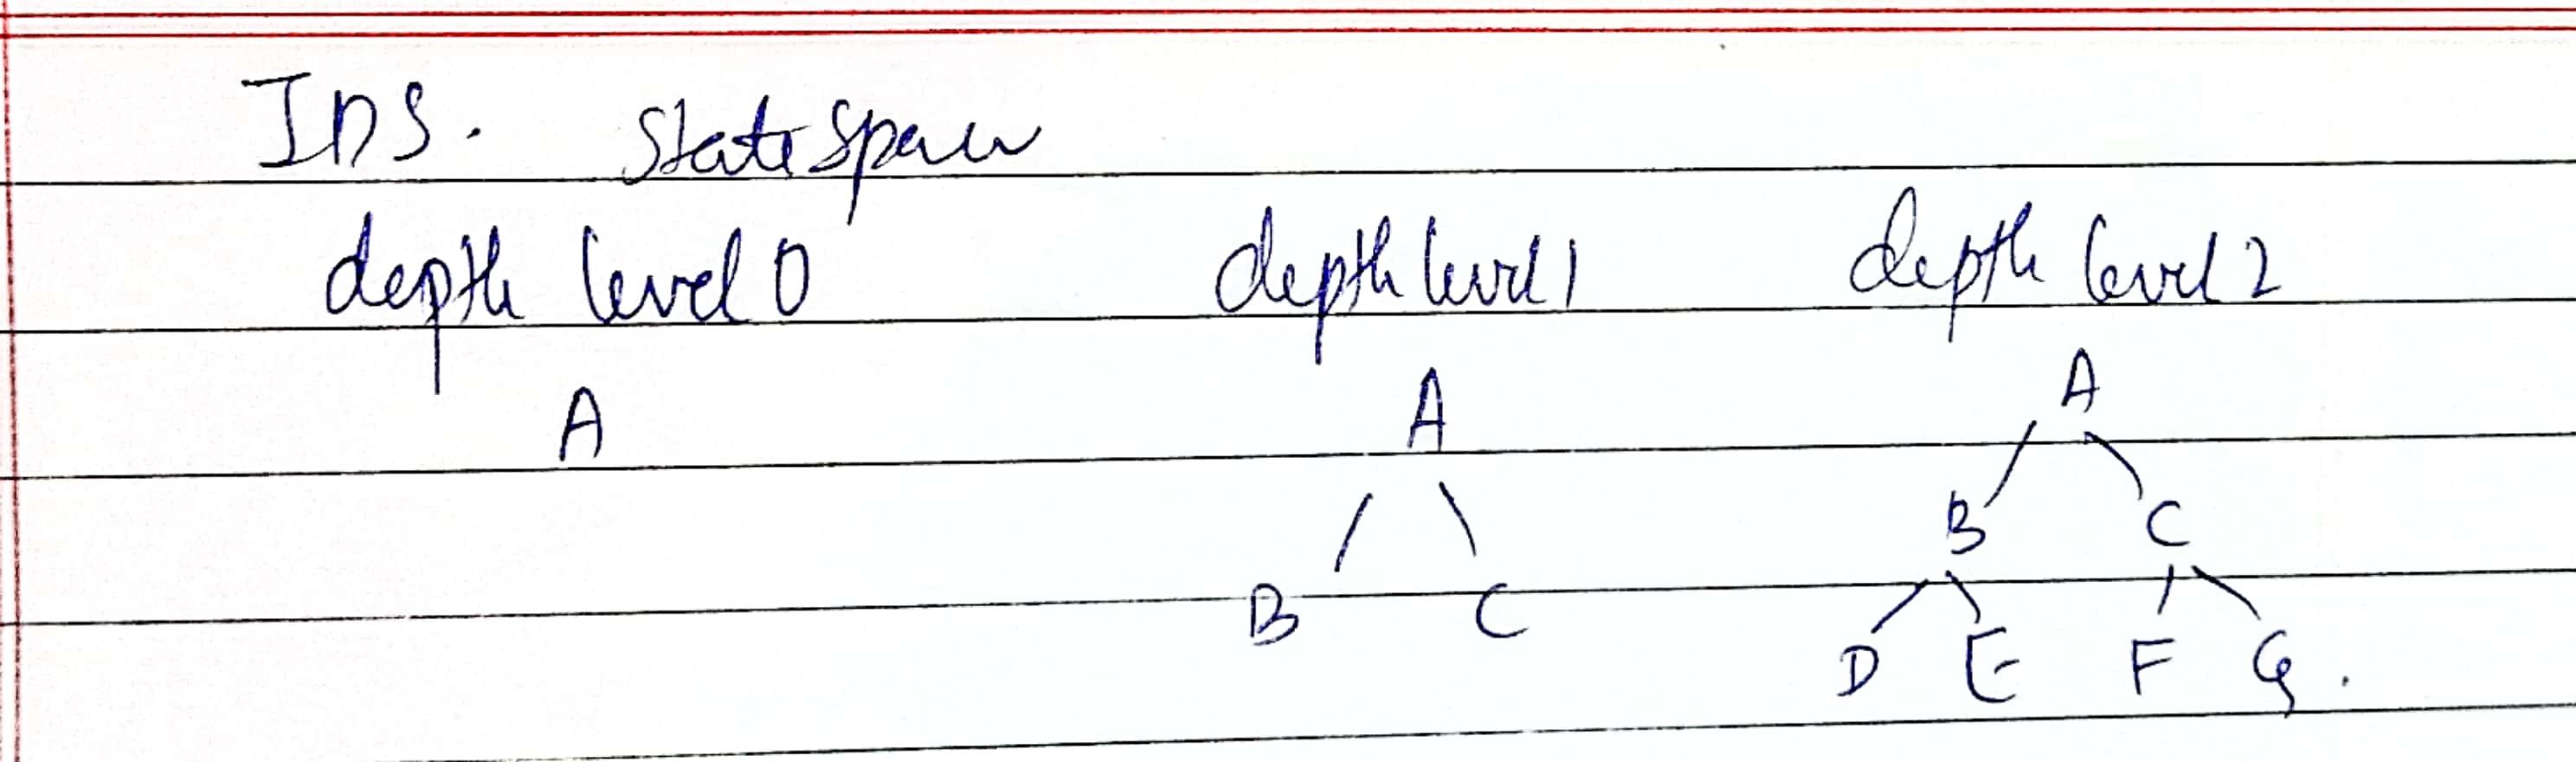 IDS. State Space
depth level 0 depth level 1 depth level 2
A A A
B C
B C
D E F G.